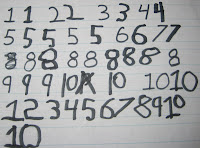 1 1 2 2 3 3 4 4
5 5 5 5 5 6 6 7 7
8 8 8 8 8 8 8 8 8
9 9 9 10 10 10 10
1 2 3 4 5 6 7 8 9 10
10